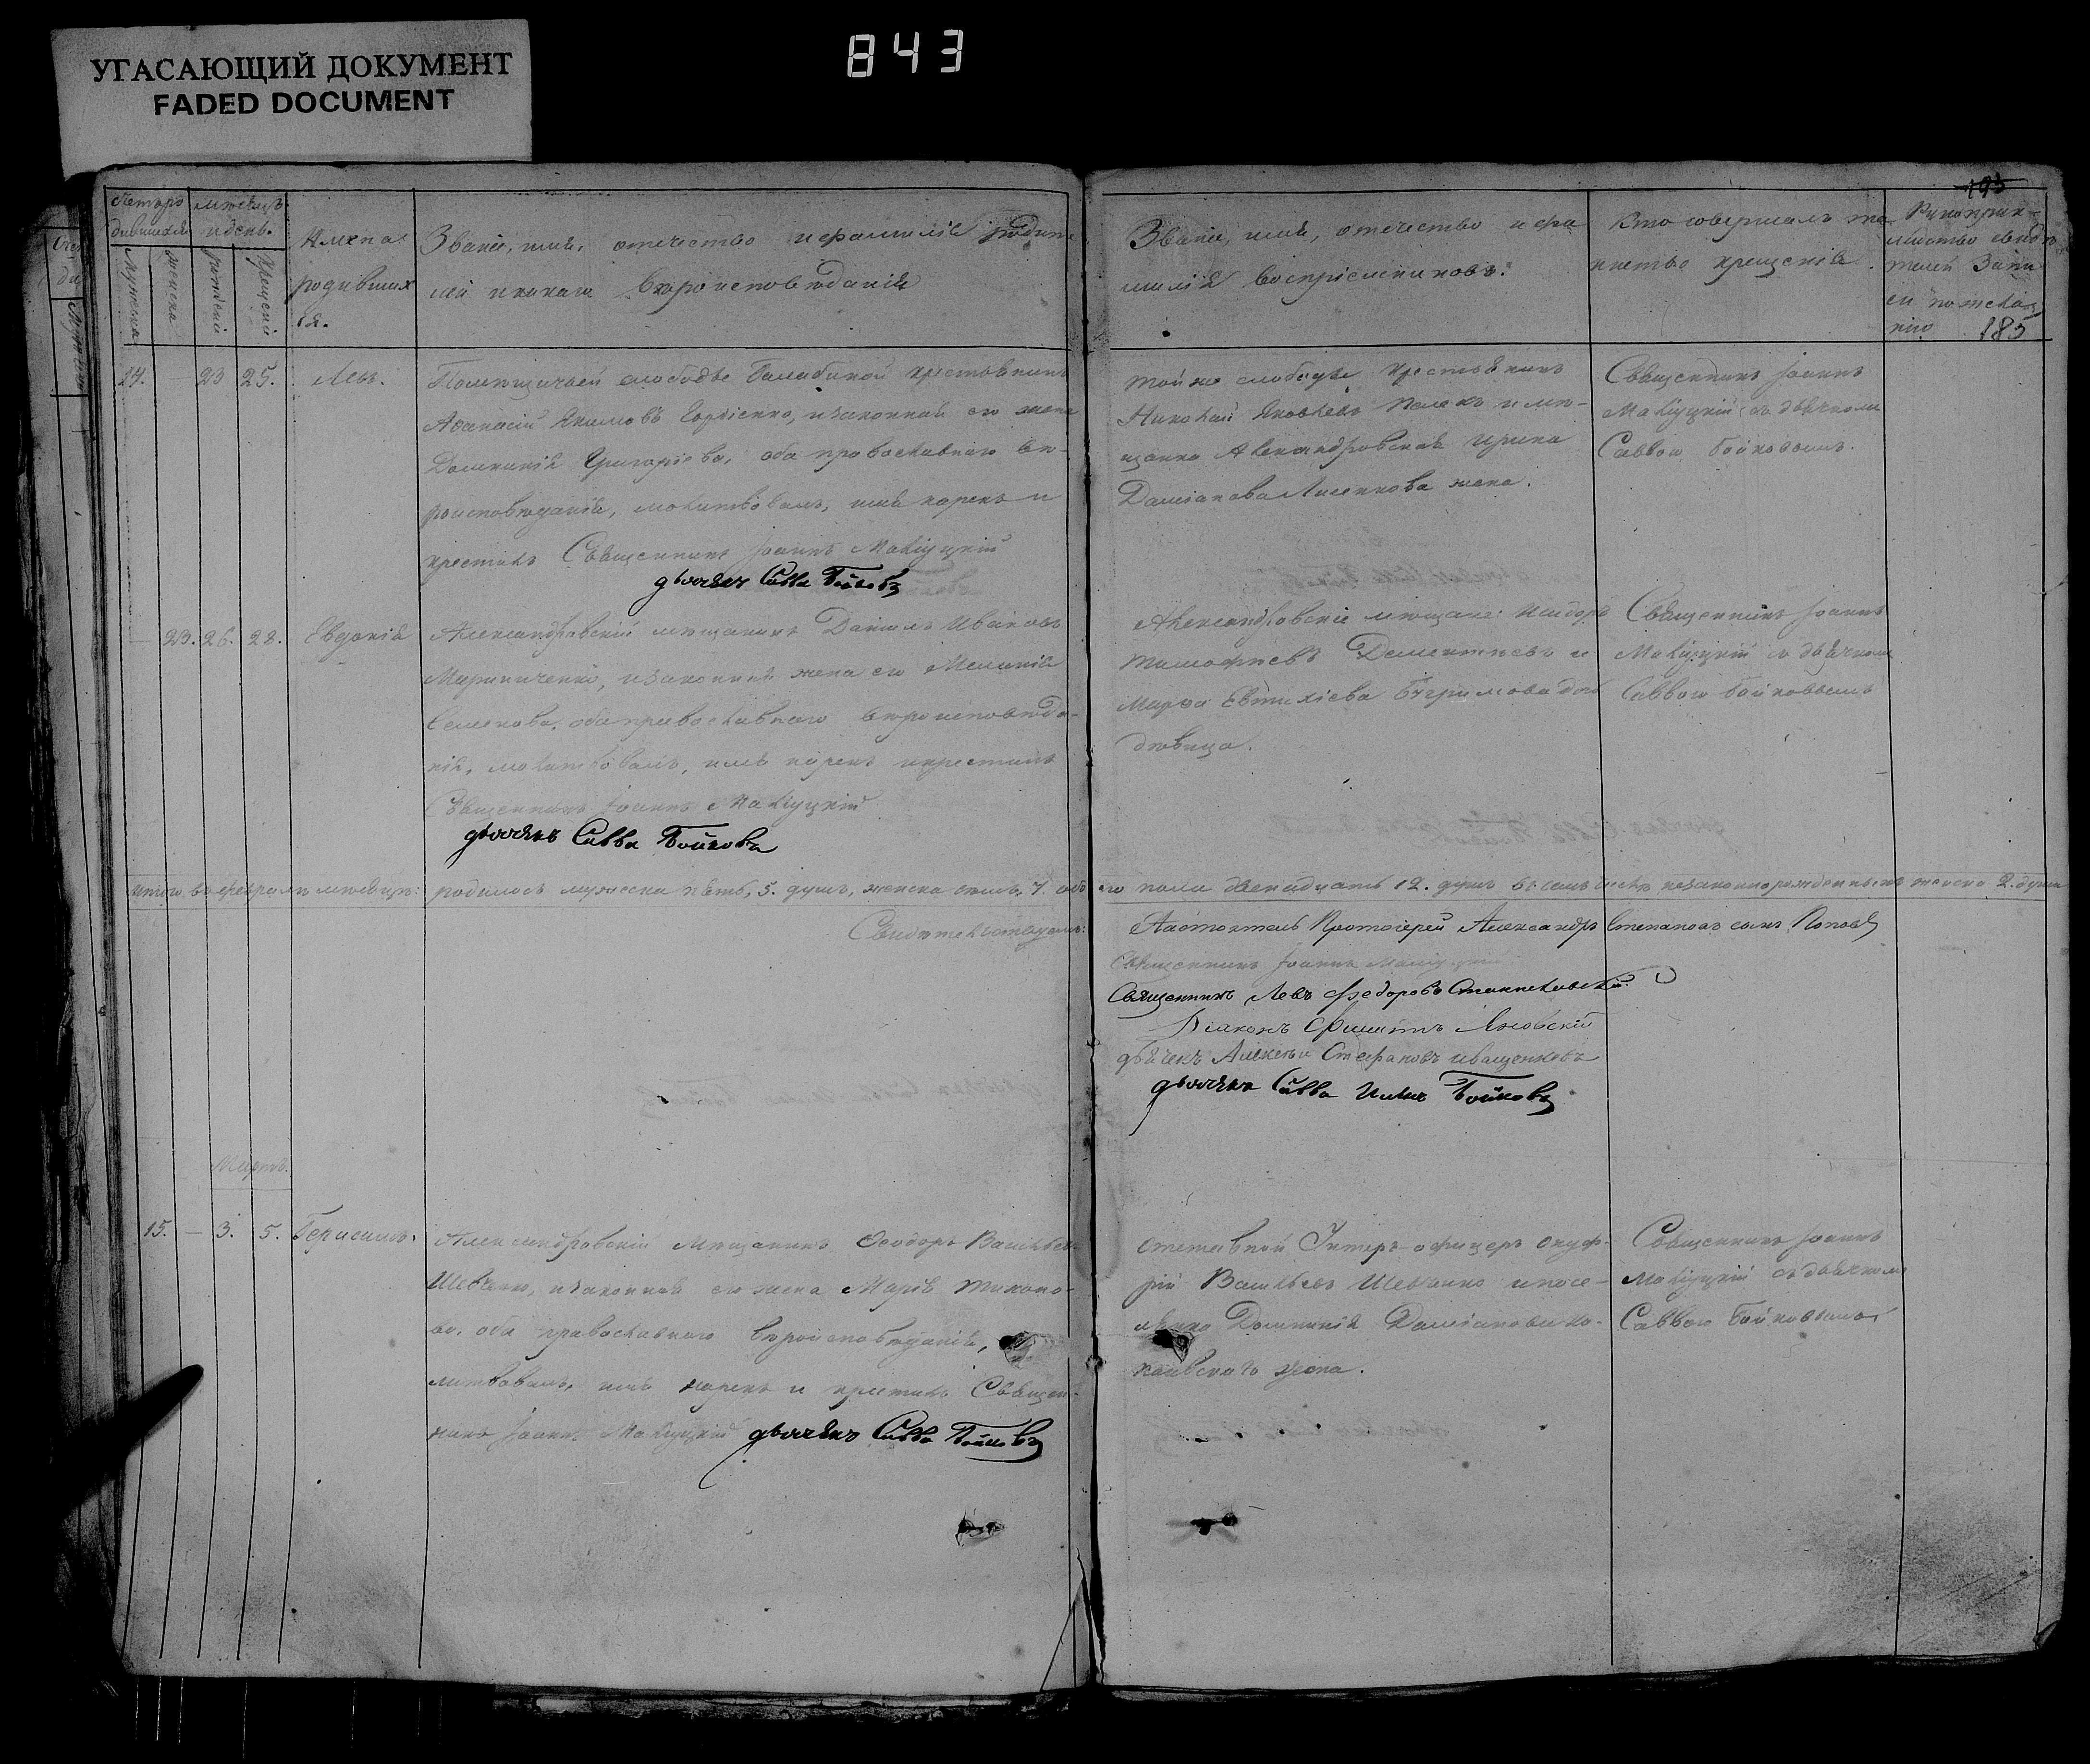 УГАСАЮЩИЙ ДОКУМЕНТ
FADED DOCUMENT
843
193
185
Счетъ ро
дившихся
мѣсяцъ
и день.
мужеска
женска
рожденія
крещенія
Имена
родивших
ся.
Званіе, имя, отчество и фамилія родите
лей и какого вѣроисповѣданія
Званіе, имя, отчество и фа
милія воспріемниковъ.
Кто совершалъ та
инство крещенія.
Рукоприк-
ладство свидѣ
телей записи
по жела
нію
14. 23 25. Левъ.
Помѣщичьей слободы Балабиной крестьянинъ
Аѳанасій Якимовъ Гордіенко, и законная его жена
Домникія Григоріева, оба православнаго вѣ-
роисповѣданія, молитвовалъ, имя нарекъ и
крестилъ Священникъ Іоаннъ
дьячекъ Савва Бойковъ
той же слободы крестьянинъ
Николай Яковлевъ и мѣ-
щанка Александровская Ирина
Даміанова жена.
Священникъ Іоаннъ
съ дьячкомъ
Саввою Бойковымъ.
23. 26. 28. Евдокія
Александровскій мѣщанинъ Даніилъ Ивановъ
Мариниченко, и законная жена его Меланія
Семенова, оба православнаго вѣроисповѣда-
нія, молитвовалъ, имя нарекъ и крестилъ
Священникъ Іоаннъ
дьячекъ Савва Бойковъ
Александровскіе мѣщане: Исидоръ
Тимофѣевъ Дементьевъ и
Марѳа Евтихіева
дѣвица.
Священникъ Іоаннъ
съ дьячкомъ
Саввою Бойковымъ
Итого въ февралѣ мѣсяцѣ: родилось мужеска пять, 5. душъ, женска семь, 7. обо его пола двенадцать 12. душъ въ семъ числѣ незаконнорожденныхъ женска 2. души
Свидѣтельствуемъ:
Настоятель Протоіерей Александръ Степановъ сынъ Поповъ
Священникъ Іоаннъ
Священникъ Левъ Федоровъ Станиславскій
Діаконъ Филиппъ Яновскій
дьячекъ Алексѣй Стефановъ Иващенковъ
дьячекъ Савва Ильинъ Бойковъ
Мартъ.
15. — 3. 5. Герасимъ.
Александровскій мѣщанинъ Ѳеодоръ Васильевъ
Шевченко, и законная его жена Марія Тихоно-
ва, оба православнаго вѣроисповѣданія, мо
литвовалъ, имя нарекъ и крестилъ Священ-
никъ Іоаннъ дьячекъ Савва Бойковъ
отставной Унтеръ-офицеръ Онуф-
рій Васильевъ Шевченко и посе-
лянка Домникія Даміанова
жена.
Священникъ Іоаннъ
съ дьячкомъ
Саввою Бойковымъ